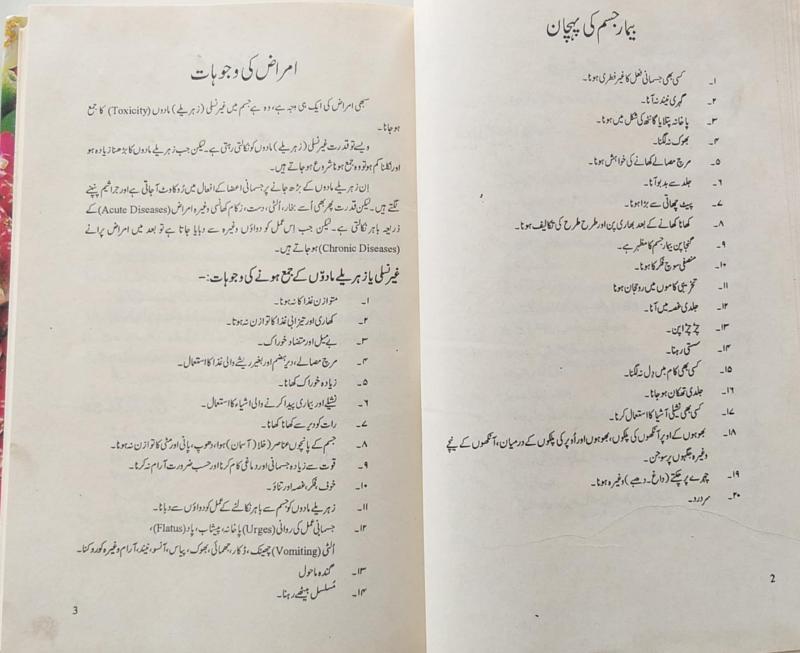 بیمار جسم کی پہچان
۱۔ کسی بھی جسمانی فعل کا غیر فطری ہونا۔
۲۔ گہری نیند نہ آنا۔
۳۔ پاخانہ پتلا یا گانٹھ کی شکل میں ہونا۔
۴۔ بھوک نہ لگنا۔
۵۔ مرچ مصالحے کھانے کی خواہش ہونا۔
۶۔ جلد سے بدبو آنا۔
۷۔ پیٹ چھاتی سے بڑا ہونا۔
۸۔ کھانا کھانے کے بعد بھاری پن اور طرح طرح کی تکالیف ہونا۔
۹۔ گنجا پن بیمار جسم کا مظہر ہے۔
۱۰۔ منفی سوچ فکر کا ہونا۔
۱۱۔ تخریبی کاموں میں روجحان ہونا
۱۲۔ جلدی غصہ میں آنا۔
۱۳۔ چڑچڑاپن۔
۱۴۔ سستی رہنا۔
۱۵۔ کسی بھی کام میں دِل نہ لگنا۔
۱۶۔ جلدی تھکان ہو جانا۔
۱۷۔ کسی بھی نشیلی اَشیا کا استعمال کرنا۔
۱۸۔ بھوہوں کے اوپر آنکھوں کی پلکوں، بھوہوں اور اُوپر کی پلکوں کے درمیان، آنکھوں کے نیچے
وغیرہ جگہوں پر سوجن۔
۱۹۔ چہرے پر چکتے (داغ۔ دھبے) وغیرہ ہونا۔
۲۰۔ سر درد۔
2
امراض کی وجوہات
سبھی امراض کی ایک ہی وجہ ہے، وہ ہے جسم میں غیر نسلی (زہریلے) مادوں (Toxicity) کا جمع
ہو جانا۔
ویسے تو قدرت غیر نسلی (زہریلے) مادوں کو نکالتی رہتی ہے۔ لیکن جب زہریلے مادوں کا بڑھنا زیادہ ہو
اور نکلنا کم ہو تو وہ جمع ہونا شروع ہو جاتے ہیں۔
اِن زہریلے مادوں کے بڑھ جانے پر جسمانی اعضا کے افعال میں رُکاوٹ آ جاتی ہے اور جراثیم پنپنے
لگتے ہیں۔ لیکن قدرت پھر بھی اُسے بخار، اُلٹی، دست، زکام کھانسی وغیرہ امراض (Acute Diseases) کے
ذریعہ باہر نکالتی ہے۔ لیکن جب اِس عمل کو دواؤں وغیرہ سے دبایا جاتا ہے تو بعد میں امراض پرانے
(Chronic Diseases) ہو جاتے ہیں۔
غیر نسلی یا زہریلے مادوّں کے جمع ہونے کی وجوہات :-
۱۔ متوازن غذا کا نہ ہونا۔
۲۔ کھاری اور تیزابی غذا کا توازن نہ ہونا۔
۳۔ بے میل اور متضاد خوراک۔
۴۔ مرچ مصالے، دیر ہضم اور بغیر ریشے والی غذا کا استعمال۔
۵۔ زیادہ خوراک کھانا۔
۶۔ نشیلے اور بیماری پیدا کرنے والی اشیاء کا استعمال۔
۷۔ رات کو دیر سے کھانا کھانا۔
۸۔ جسم کے پانچوں عناصر (خلا) (آسمان) ہوا، دھوپ، پانی اور مٹی کا توازن نہ ہونا۔
۹۔ قوت سے زیادہ جسمانی اور دماغی کام کرنا اور حسب ضرورت آرام نہ کرنا۔
۱۰۔ خوف، فکر، غصہ اور تناؤ۔
۱۱۔ زہریلے مادوں کو جسم سے باہر نکالنے کے عمل کو دواؤں سے دبانا۔
۱۲۔ جسمانی عمل کی روانی (Urges) پاخانہ، پیشاب، پاد (Flatus)،
اُلٹی (Vomiting) چھینک، ڈکار، جمھائی، بھوک، پیاس، آنسو، نیند، آرام وغیرہ کو روکنا۔
۱۳۔ گندہ ماحول
۱۴۔ مُسلسل بیٹھے رہنا۔
3